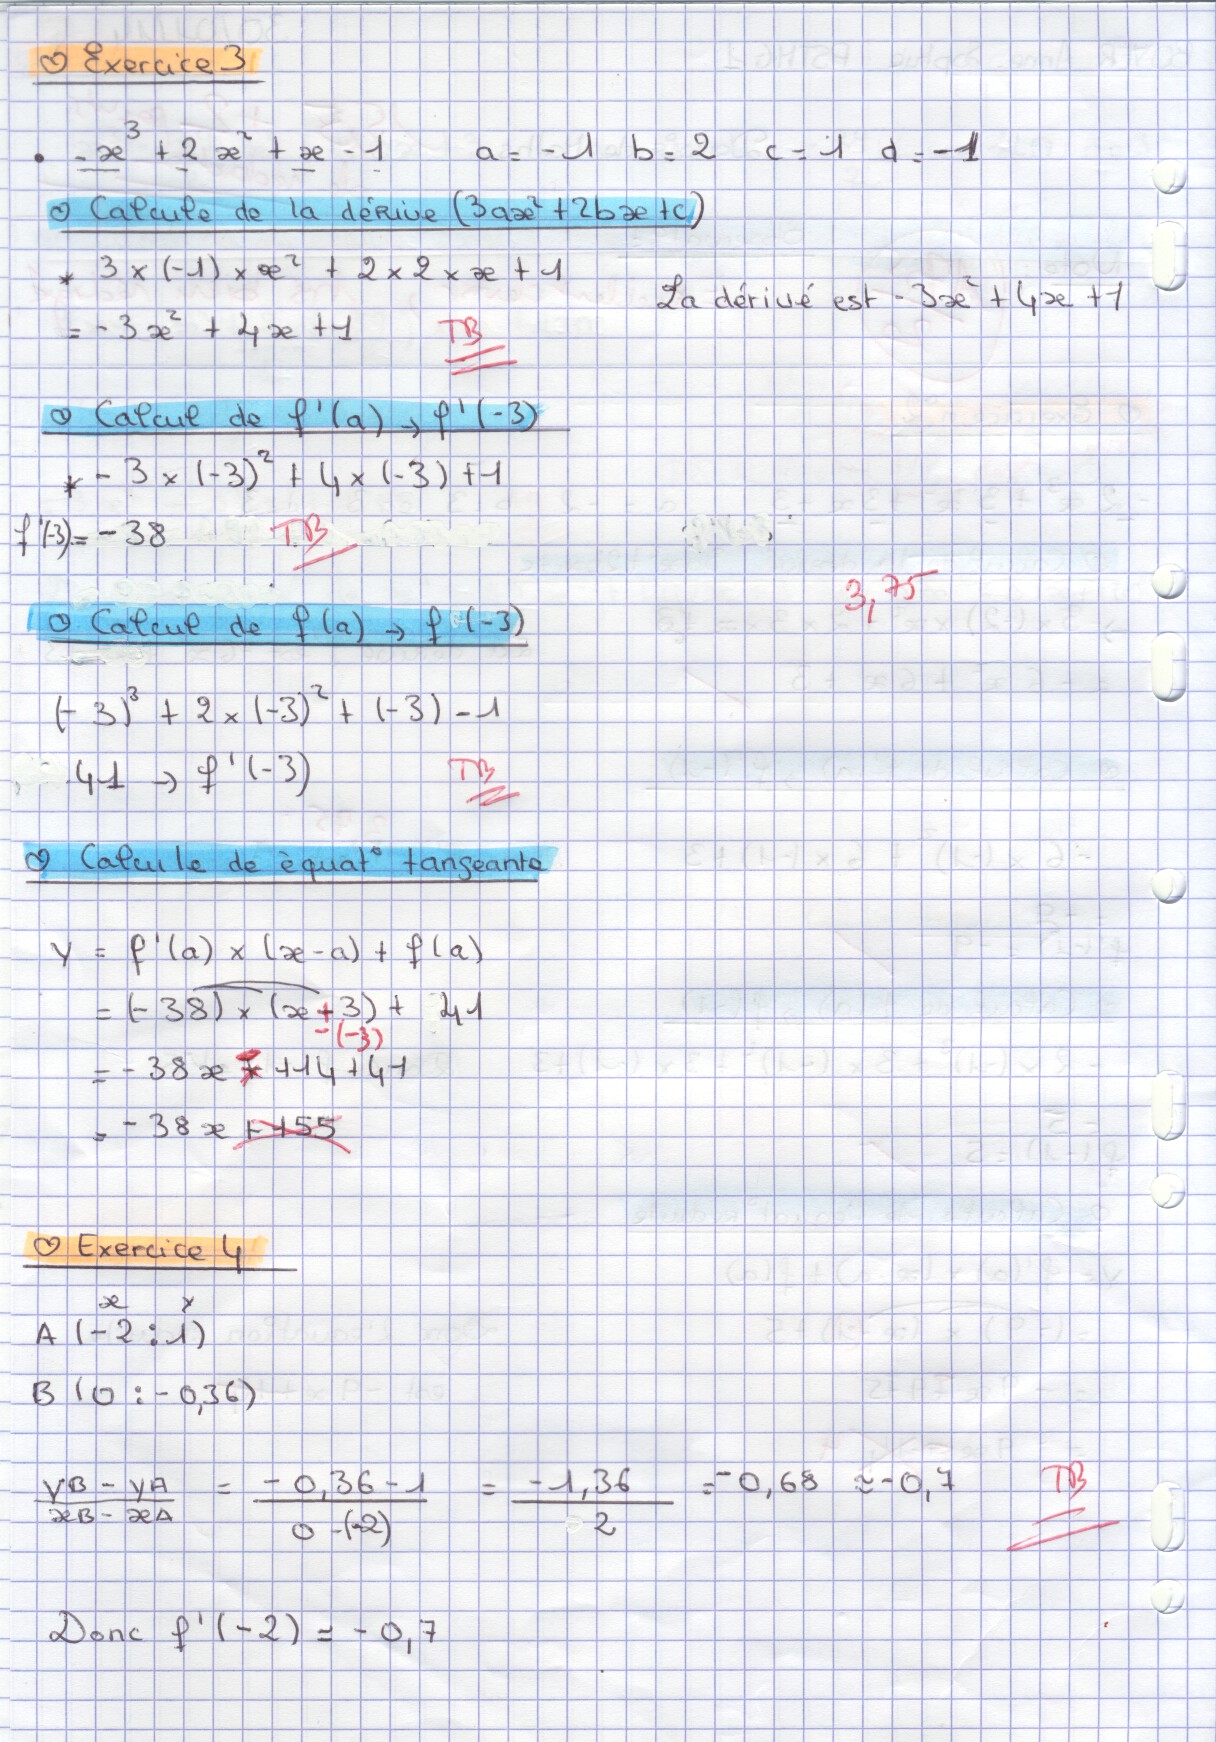 Exercice 3
• -x³ + 2x² + x - 1 a = -1 b = 2 c = 1 d = -1
Calcule de la dérive (3ax² + 2bx + c)
* 3 × (-1) × x² + 2 × 2 × x + 1
La dérivé est -3x² + 4x + 1
= -3x² + 4x + 1 TB
Calcul de f'(a) → f'(-3)
* - 3 × (-3)² + 4 × (-3) + 1
f'(-3) = -38 TB
3,75
Calcul de f(a) → f (-3)
(-3)³ + 2 × (-3)² + (-3) - 1
41 → f'(-3) TB
Calcule de équat° tangeante
Y = f'(a) × (x-a) + f(a)
= (-38) × (x + 3) + 41
- (-3)
= -38x + 114 + 41
= -38x + 155
Exercice 4
x y
A (-2 : 1)
B (0 : -0,36)
yB - yA / xB - xA = -0,36 - 1 / 0 - (-2) = -1,36 / 2 = -0,68 ≈ -0,7 TB
Donc f'(-2) = -0,7